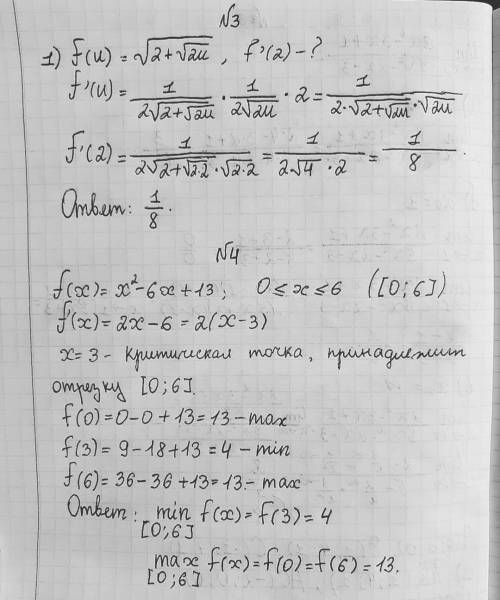 №3
1) f(u) = √(2+√(2u)), f'(2) - ?
f'(u) = 1/(2√(2+√(2u))) · 1/(2√(2u)) · 2 = 1/(2·√(2+√(2u))·√(2u))
f'(2) = 1/(2√(2+√(2·2))·√(2·2)) = 1/(2√4·2) = 1/8.
Ответ: 1/8.
№4
f(x) = x²-6x+13; 0 ≤ x ≤ 6 ([0;6])
f'(x) = 2x-6 = 2(x-3)
x=3 - критическая точка, принадлежит
отрезку [0;6].
f(0)=0-0+13=13-max
f(3)=9-18+13=4-min
f(6)=36-36+13=13-max
Ответ: min f(x)=f(3)=4
[0;6]
max f(x)=f(0)=f(6)=13.
[0;6]